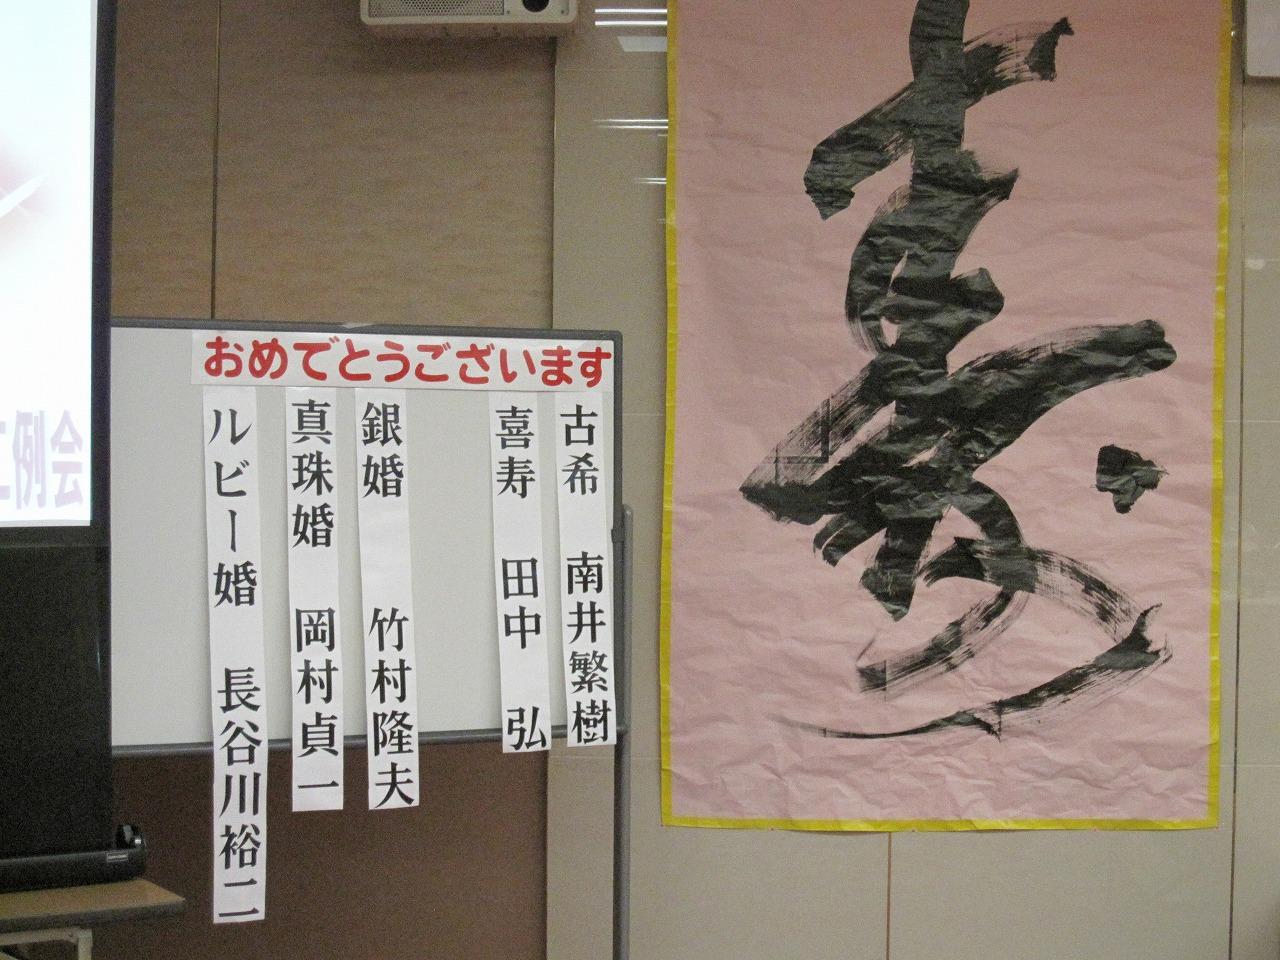 おめでとうございます
古希 南井繁樹
喜寿 田中 弘
銀婚 竹村隆夫
真珠婚 岡村貞一
ルビー婚 長谷川裕二
寿
例会